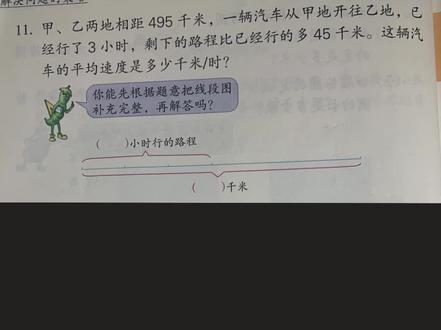 11. 甲、乙两地相距 495 千米，一辆汽车从甲地开往乙地，已
经行了 3 小时，剩下的路程比已经行的多 45 千米。这辆汽
车的平均速度是多少千米/时？
你能先根据题意把线段图
补充完整，再解答吗？
（　　）小时行的路程
（　　）千米